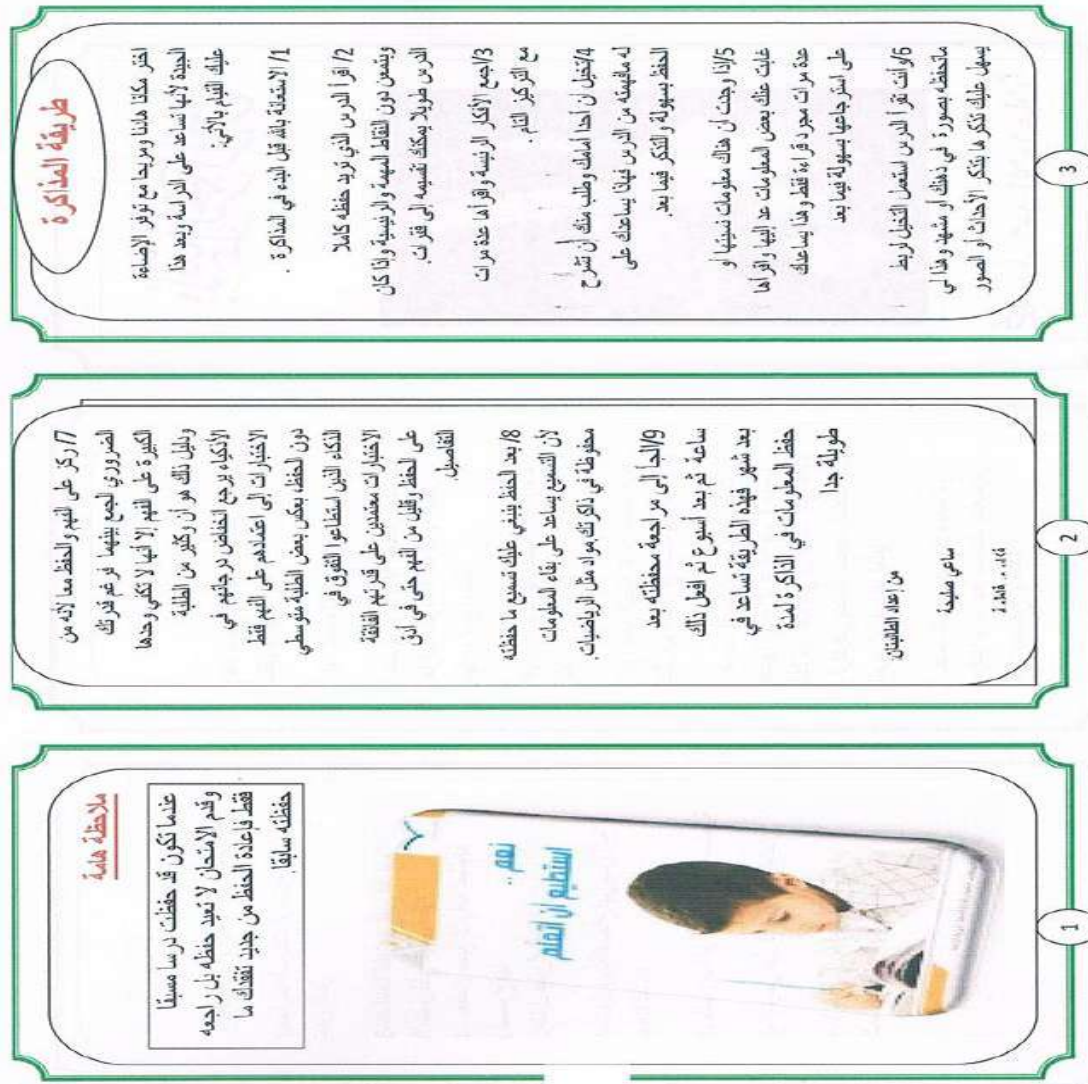 طريقة المذاكرة
اختر مكانا هادئا ومريحا مع توفر الإضاءة
الجيدة لأنها تساعد على الدراسة وبعد هذا
عليك القيام بالآتي:
1/ الاستعانة بالله قبل البدء في المذاكرة .
2/ اقرأ الدرس الذي تريد حفظه كاملا
وبتمعن دون النقاط المهمة والرئيسية وإذا كان
الدرس طويلا يمكنك تقسيمه إلى فقرات.
3/اجمع الأفكار الرئيسة واقرأها عدة مرات
مع التركيز التام.
4/تخيل أن أحدا أمامك وطلب منك أن تشرح
له مافهمته من الدرس فهاذا يساعدك على
الحفظ بسهولة والتذكر فيما بعد.
5/إذا وجدت أن هناك معلومات نسيتها أو
غابت عنك بعض المعلومات عد إليها واقرأها
عدة مرات مجرد قراءة فقط وهذا يساعدك
على استرجاعها بسهولة فيما بعد
6/وأنت تقرأ الدرس استعمل التخيل لربط
ماتحفظه بصورة في ذهنك أو مشهد وهذا لي
يسهل عليك تذكرها بتذكر الأحداث أو الصور
3
7/ركز على الفهم والحفظ معا لأنه من
الضروري الجمع بينهما فرغم قدرتك
الكبيرة على الفهم إلا أنها لا تكفي وحدها
ودليل ذلك هو أن وكثير من الطلبة
الأذكياء يرجع انخفاض درجاتهم في
الاختبارات إلى اعتمادهم على الفهم فقط
دون الحفظ، بعكس بعض الطلبة متوسطي
الذكاء الذين استطاعوا التفوق في
الاختبارات معتمدين على قدرتهم الفائقة
على الحفظ وقليل من الفهم حتى في أدق
التفاصيل.
8/بعد الحفظ ينبغي عليك تسميع ما حفظته
لأن التسميع يساعد على بقاء المعلومات
محفوظة في ذاكرتك مواد مثل الرياضيات.
9/الجأ إلى مراجعة محفظته بعد
ساعة ثم بعد أسبوع ثم افعل ذلك
بعد شهر فهذه الطريقة تساعد في
حفظ المعلومات في الذاكرة لمدة
طويلة جدا
من إعداد الطالبتان:
ساعي صليحة
2
ملاحظة هامة
عندما تكون قد حفظت درسا مسبقا
وقدم الامتحان لا تعيد حفظه بل راجعه
فقط فإعادة الحفظ من جديد تفقدك ما
حفظته سابقا.
نعم ..
استطيع ان اتعلم
1